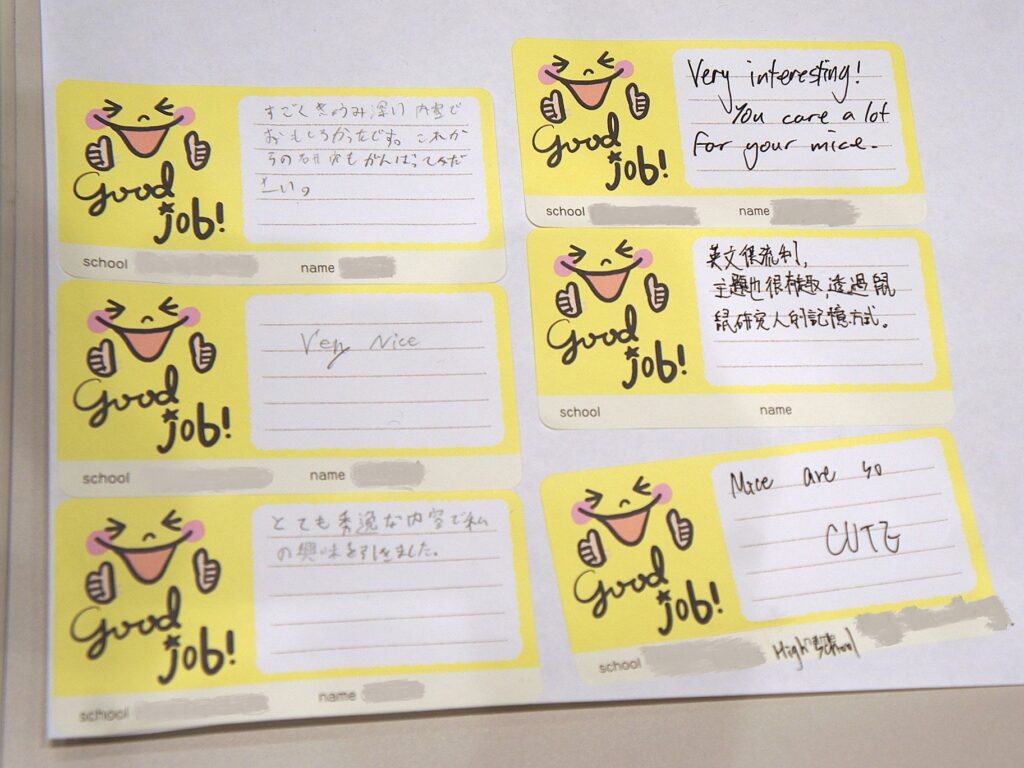 Good
job!
すごくきょうみ深い内容で
おもしろかったです。これか
らの研究もがんばってくだ
さい。
school
name
Good
job!
Very Nice
school
name
Good
job!
とても秀逸な内容で私
の興味を引きました。
school
name
Good
job!
Very interesting!
You care a lot
for your mice.
school
name
Good
job!
英文很流利,
主題也很有趣,透過鼠
鼠研究人的記憶方式。
school
name
Good
job!
Mice are so
CUTE
school
High School